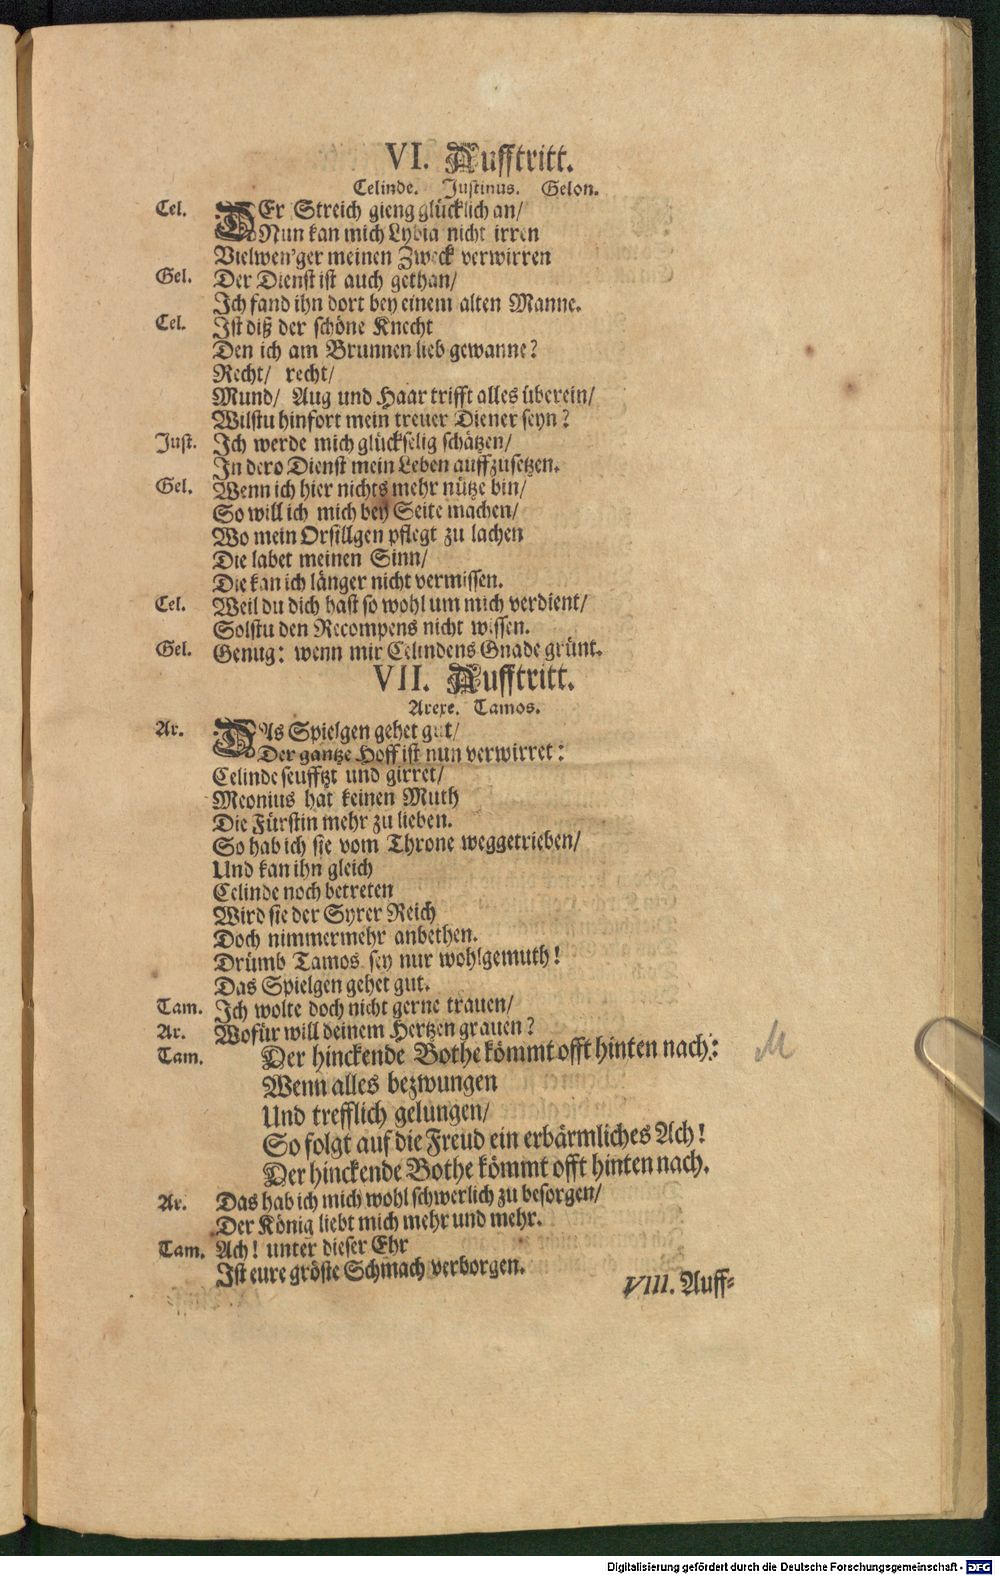 VI. Aufftritt.
Celinde. Justinus. Gelon.
Cel. DEr Streich gieng glücklich an/
Nun kan mich Lybia nicht irren
Vielwen'ger meinen Zweck verwirren
Gel. Der Dienst ist auch gethan/
Ich fand ihn dort bey einem alten Manne.
Cel. Ist diß der schöne Knecht
Den ich am Brunnen lieb gewanne?
Recht/ recht/
Mund/ Aug und Haar trifft alles überein/
Wilstu hinfort mein treuer Diener seyn?
Just. Ich werde mich glückselig schätzen/
In dero Dienst mein Leben auffzusetzen.
Gel. Wenn ich hier nichts mehr nütze bin/
So will ich mich bey Seite machen/
Wo mein Orsillgen pflegt zu lachen
Die labet meinen Sinn/
Die kan ich länger nicht vermissen.
Cel. Weil du dich hast so wohl um mich verdient/
Solstu den Recompens nicht wissen.
Gel. Genug: wenn mir Celindens Gnade grünt.
VII. Aufftritt.
Arexe. Tamos.
Ar. DAs Spielgen gehet gut/
Der gantze Hoff ist nun verwirret:
Celinde seufftzt und girret/
Meonius hat keinen Muth
Die Fürstin mehr zu lieben.
So hab ich sie vom Throne weggetrieben/
Und kan ihn gleich
Celinde noch betreten
Wird sie der Syrer Reich
Doch nimmermehr anbethen.
Drümb Tamos sey nur wohlgemuth!
Das Spielgen gehet gut.
Tam. Ich wolte doch nicht gerne trauen/
Ar. Wofür will deinem Hertzen grauen?
Tam. Der hinckende Bothe kömmt offt hinten nach:
Wenn alles bezwungen
Und trefflich gelungen/
So folgt auf die Freud ein erbärmliches Ach!
Der hinckende Bothe kömmt offt hinten nach.
Ar. Das hab ich mich wohl schwerlich zu besorgen/
Der König liebt mich mehr und mehr.
Tam. Ach! unter dieser Ehr
Ist eure gröste Schmach verborgen.
VIII. Auff=
M
Digitalisierung gefördert durch die Deutsche Forschungsgemeinschaft - DFG